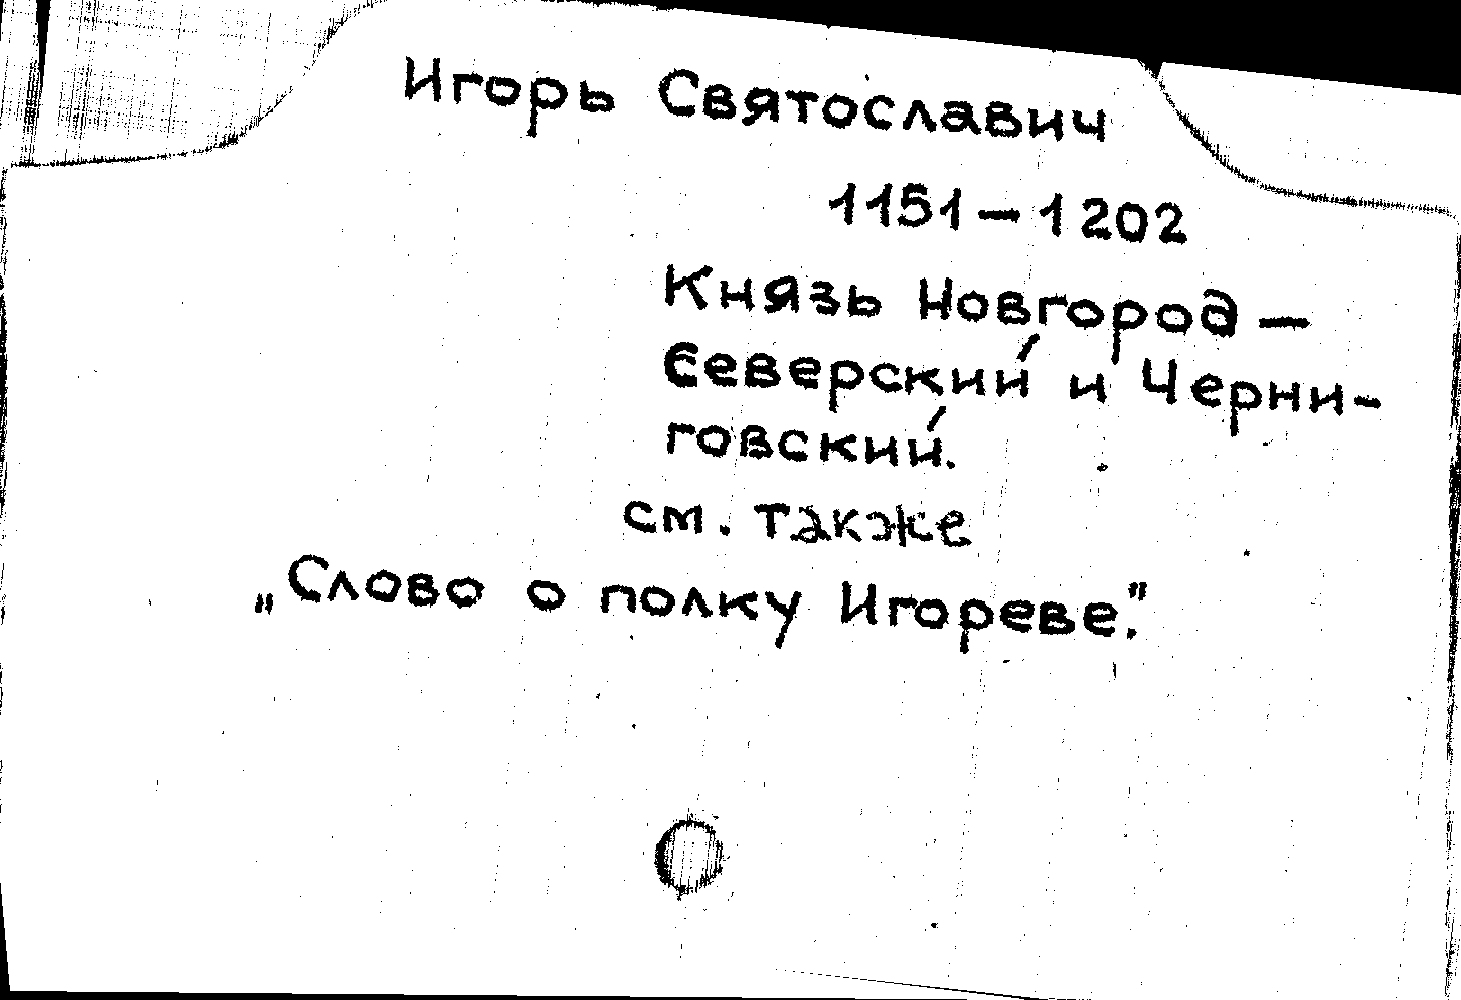 Игорь Святославич
1151–1202
Князь Новгород–
Северский и Черни-
говский.
см. также
„Слово о полку Игореве."